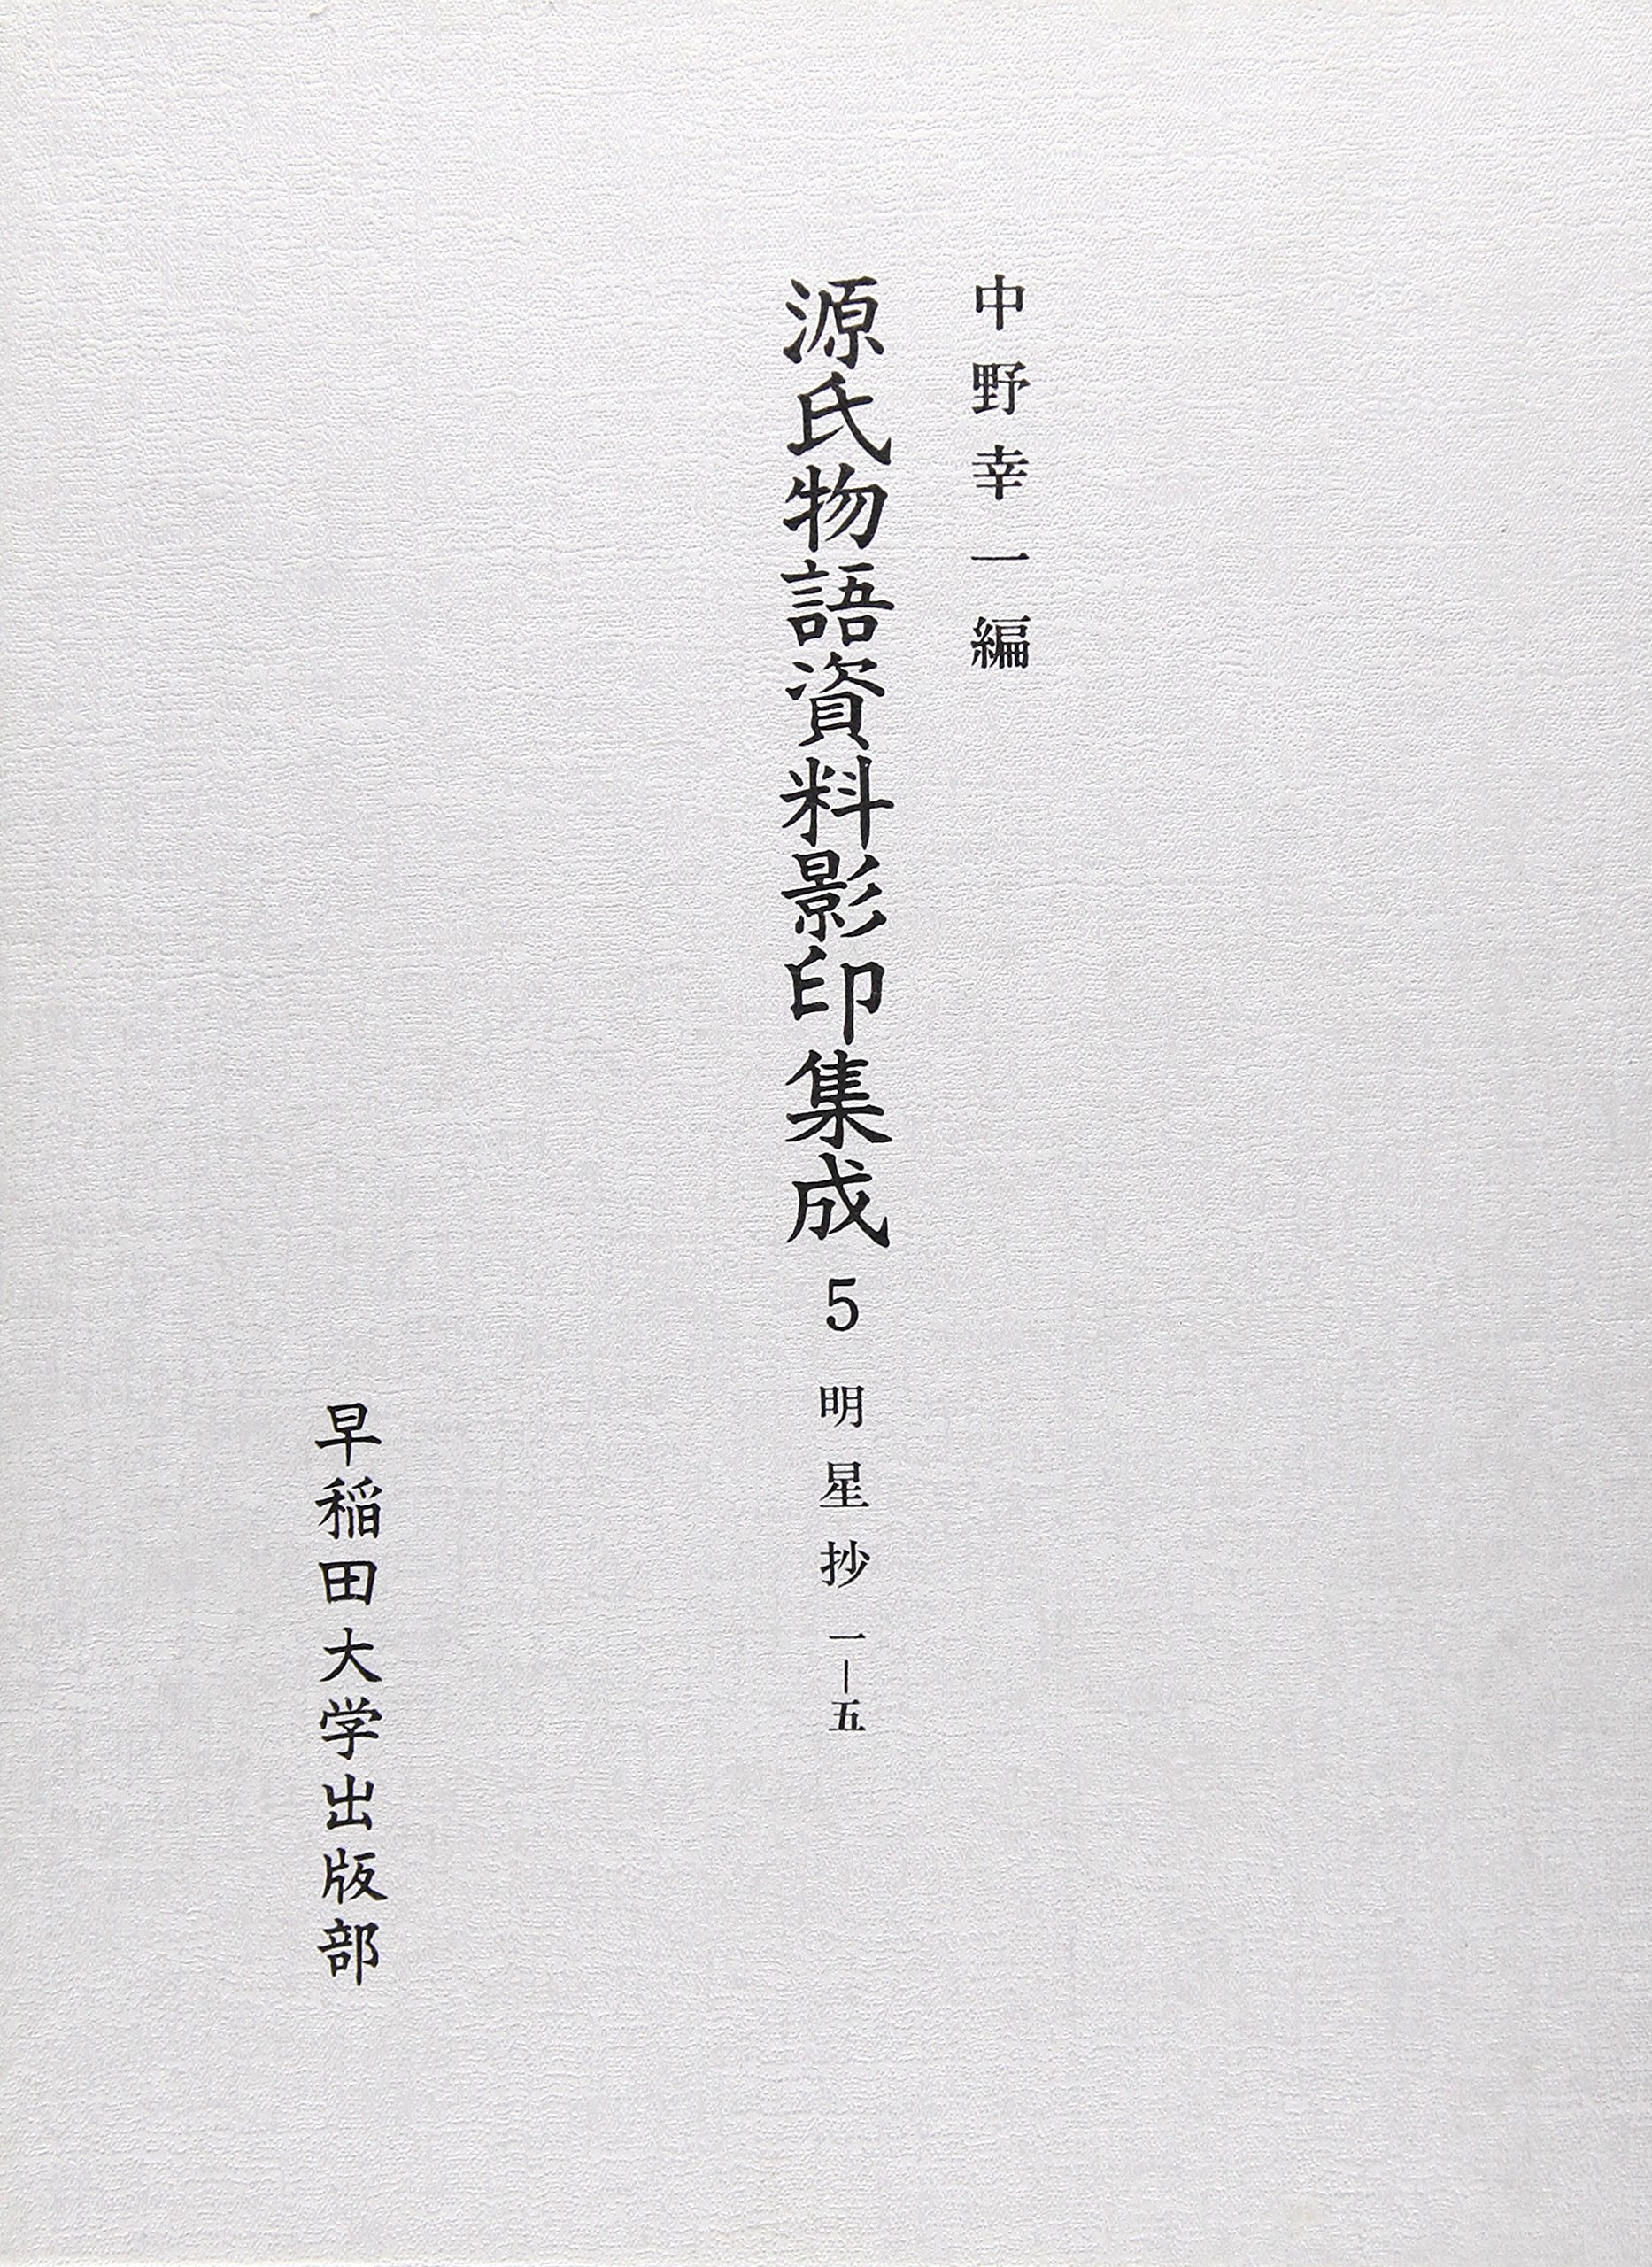 中野幸一編
源氏物語資料影印集成 5 明星抄 一―五
早稲田大学出版部